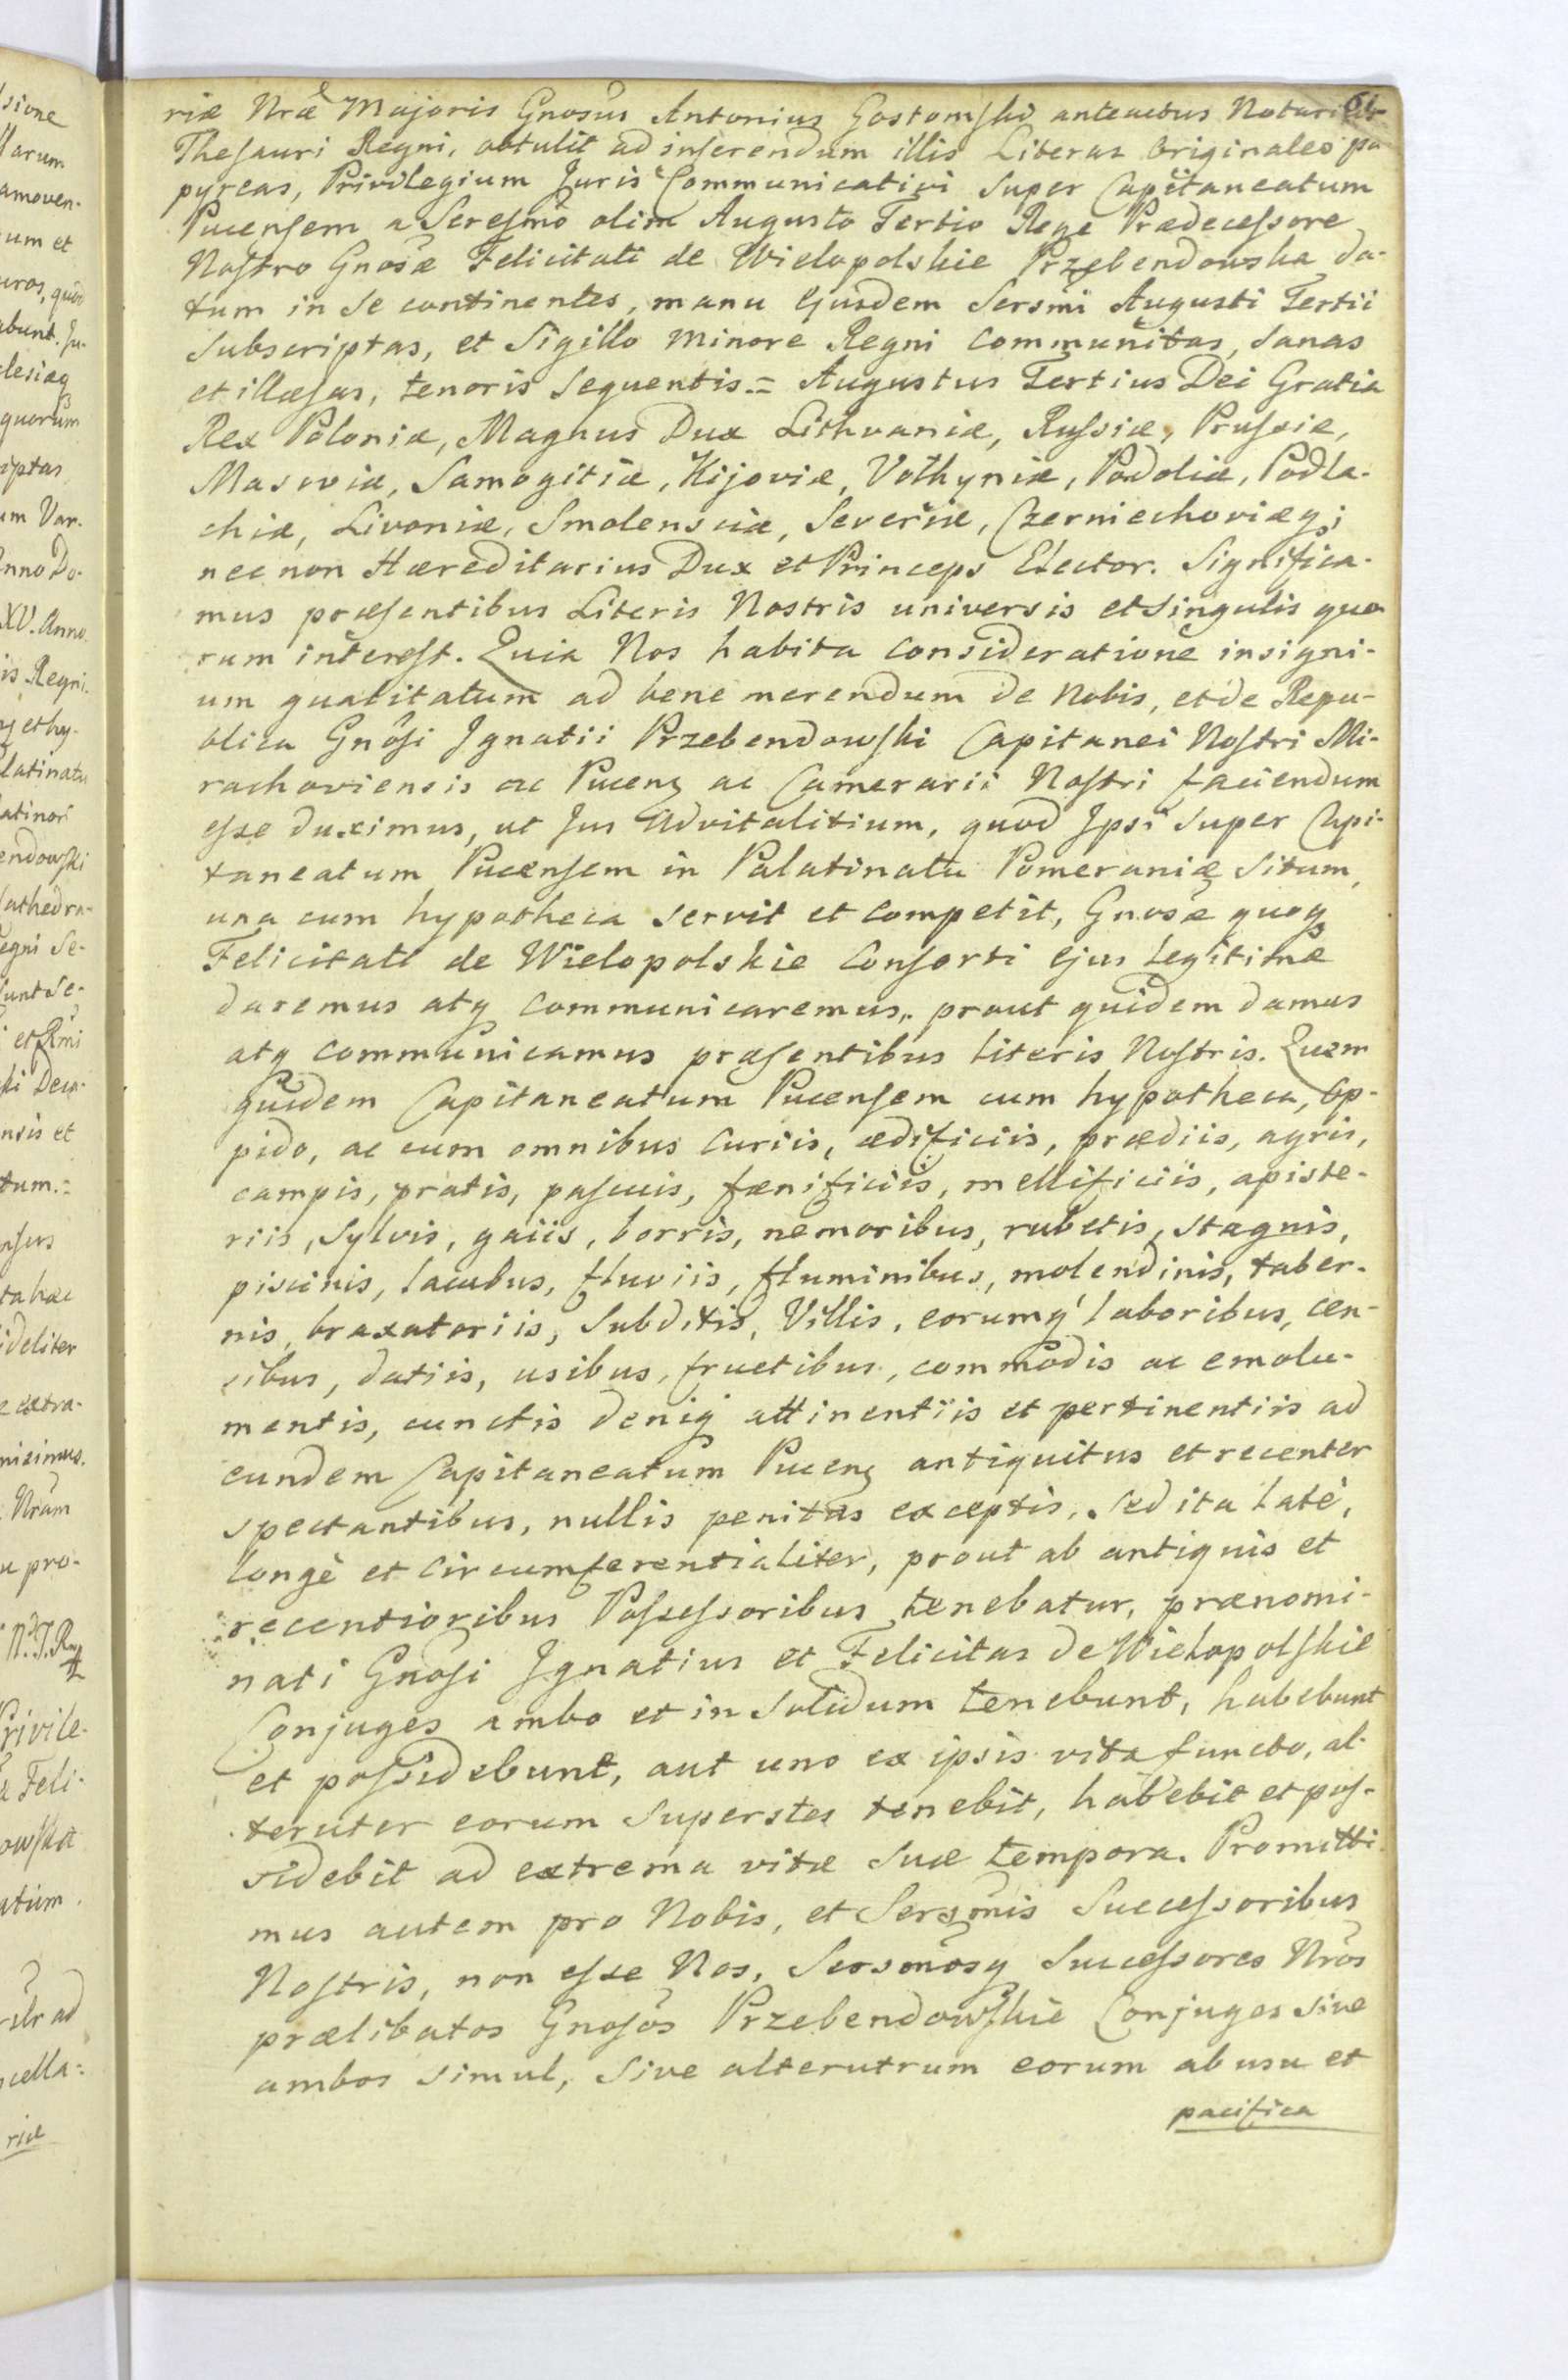 sione
larum
amoven-
um et
uros, quod
abunt. Ju-
clesiæq
quorum
iptas
um Var-
nno Do-
XV. Anno
is Regni
et hy-
latinatu
atinor
endowski
Cathedra-
egni Se-
sunt Se-
et Rmi
ski Deca-
nsis et
tum.=
nsus
ta hac
ideliter
e extra-
misimus.
Nram
u pro-
Privile-
a Feli-
owska
atium.
ad
cella=
riæ
61
riæ Nræ Majoris Gnosus Antonius Gostomski anteactus Notarius
Thesauri Regni, obtulit ad inserendum illis Literas Originales pa
pyreas, Privilegium Juris Communicativi Super Capitaneatum
Pucensem a Seresmo olim Augusto Tertio Rege Prædecessore
Nostro Gnosæ Felicitati de Wielopolskie Przebendowska da-
tum in Se continentes, manu Ejusdem Sersmi Augusti Tertii
Subscriptas, et Sigillo Minore Regni Communitas, Sanas
et illæsas, tenoris Sequentis.= Augustus Tertius Dei Gratia
Rex Poloniæ, Magnus Dux Lithvaniæ, Russiæ, Prussiæ,
Masoviæ, Samogitiæ, Kijoviæ, Volhyniæ, Podoliæ, Podla-
chiæ, Livoniæ, Smolensciæ, Severiæ, Czerniechoviæq;
nec non Hæreditarius Dux et Princeps Elector. Significa-
mus præsentibus Literis Nostris universis et Singulis quo
rum interest. Quia Nos habita Consideratione insigni-
um qualitatum ad bene merendum de Nobis, et de Repu-
blica Gnosi Ignatii Przebendowski Capitanei Nostri Mi-
rachoviensis ac Pucenς ac Camerarii Nostri faciendum
esse duximus, ut Jus Advitalitium, quod Ipsi Super Capi-
taneatum Pucensem in Palatinatu Pomeraniæ Situm,
una cum hypotheca Servit et Competit, Gnosæ quoq
Felicitati de Wielopolskie Consorti Ejus Legitimæ
daremus atq Communicaremus, prout quidem damus
atq Communicamus præsentibus Literis Nostris. Quem
quidem Capitaneatum Pucensem cum hypotheca, Op-
pido, ac cum omnibus Curiis, ædificiis, prædiis, agris,
campis, pratis, pascuis, fænificiis, mellificiis, apiste-
riis, Sylvis, gaiis, borris, nemoribus, rubetis, stagnis,
piscinis, lacubus, fluviis, fluminibus, molendinis, taber-
nis, braxatoriis, Subditis, Villis, eorumq laboribus, cen-
sibus, datiis, usibus, fructibus, commodis ac emolu-
mentis, cunctis deniq attinentiis et pertinentiis ad
eundem Capitaneatum Pucenς antiquitus et recenter
spectantibus, nullis penitus exceptis, Sed ita latè,
longè et Circumferentialiter, prout ab antiquis et
recentioribus Possessoribus tenebatur, prænomi-
nati Gnosi Ignatius et Felicitas de Wielopolskie
Conjuges ambo et in Solidum tenebunt, habebunt
et possidebunt, aut uno ex ipsis vita functo, al-
teruter eorum Superstes tenebit, habebit et pos-
sidebit ad extrema vitæ Suæ tempora. Promitti
mus autem pro Nobis, et Sersmis Successoribus
Nostris, non esse Nos, Sersmosq Successores Nros
prælibatos Gnosos Przebendowskie Conjuges sive
ambos simul, Sive alterutrum eorum ab usu et
pacifica